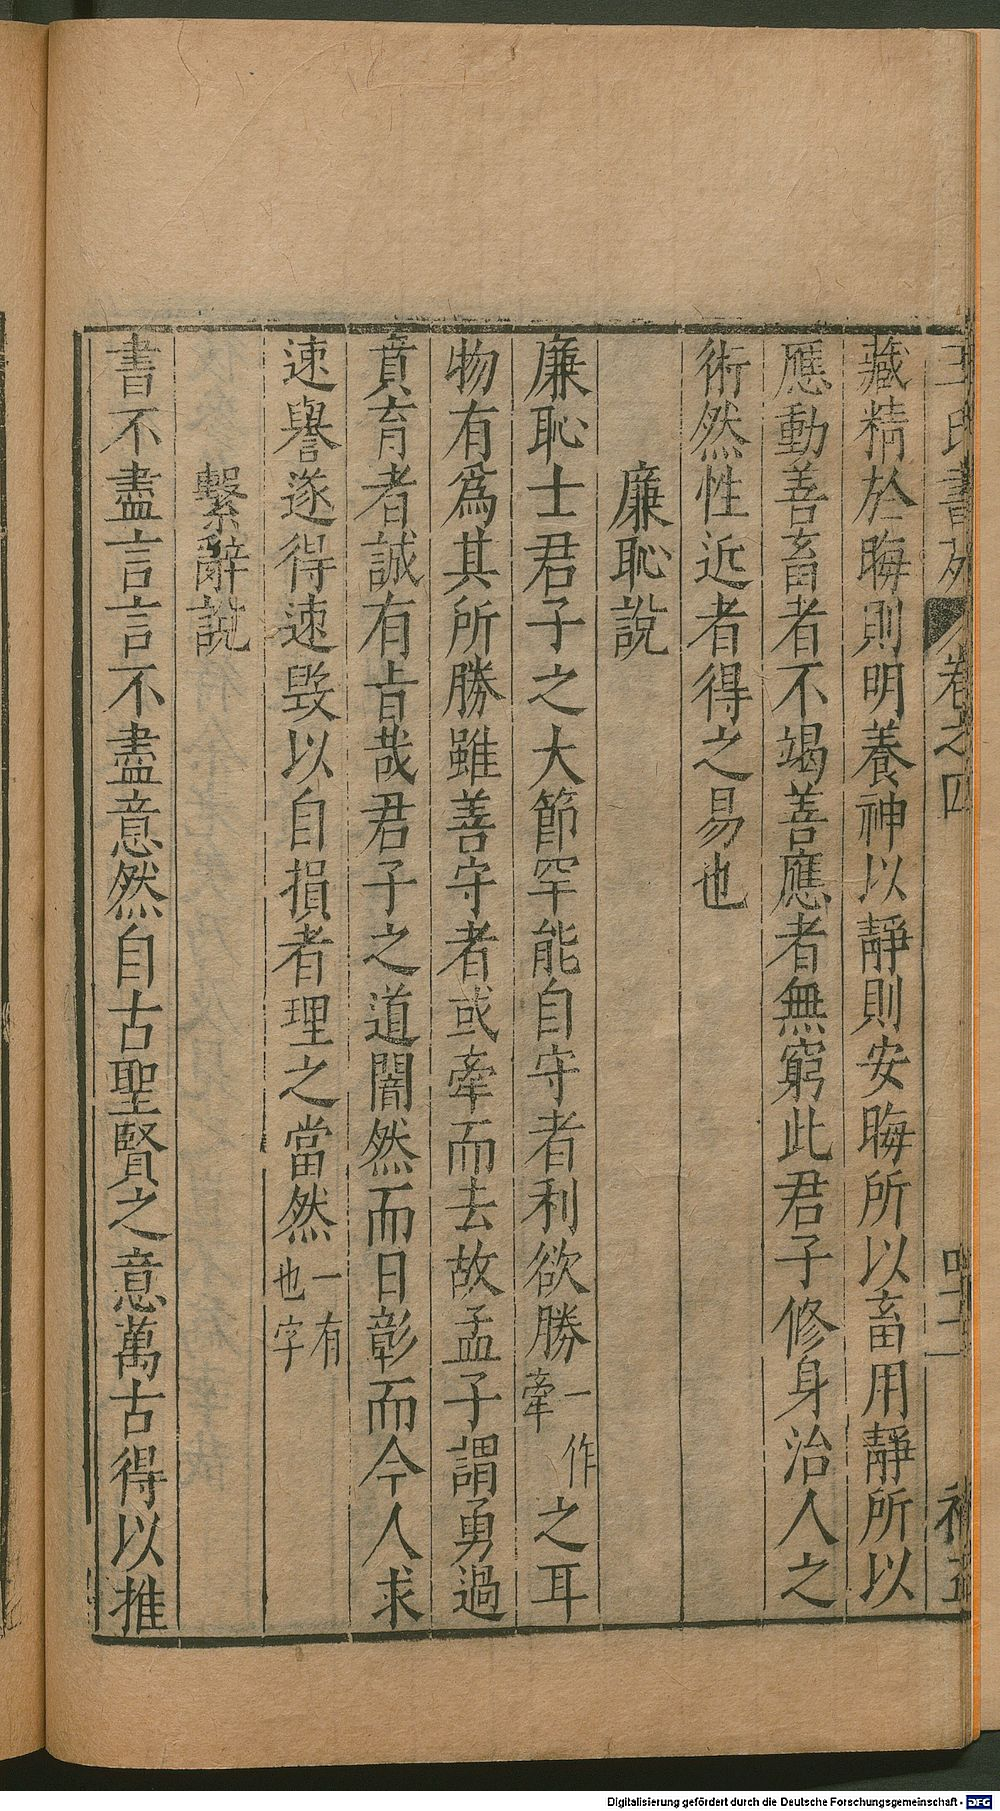 王氏書苑 卷之四 四十二
藏精於晦則明養神以靜則安晦所以畜用靜所以
應動善畜者不竭善應者無窮此君子修身治人之
術然性近者得之易也
廉恥說
廉恥士君子之大節罕能自守者利欲勝一作牽之耳
物有爲其所勝雖善守者或牽而去故孟子謂勇過
賁育者誠有旨哉君子之道闇然而日彰而今人求
速譽遂得速毀以自損者理之當然一有也字
繫辭說
書不盡言言不盡意然自古聖賢之意萬古得以推
Digitalisierung gefördert durch die Deutsche Forschungsgemeinschaft - DFG